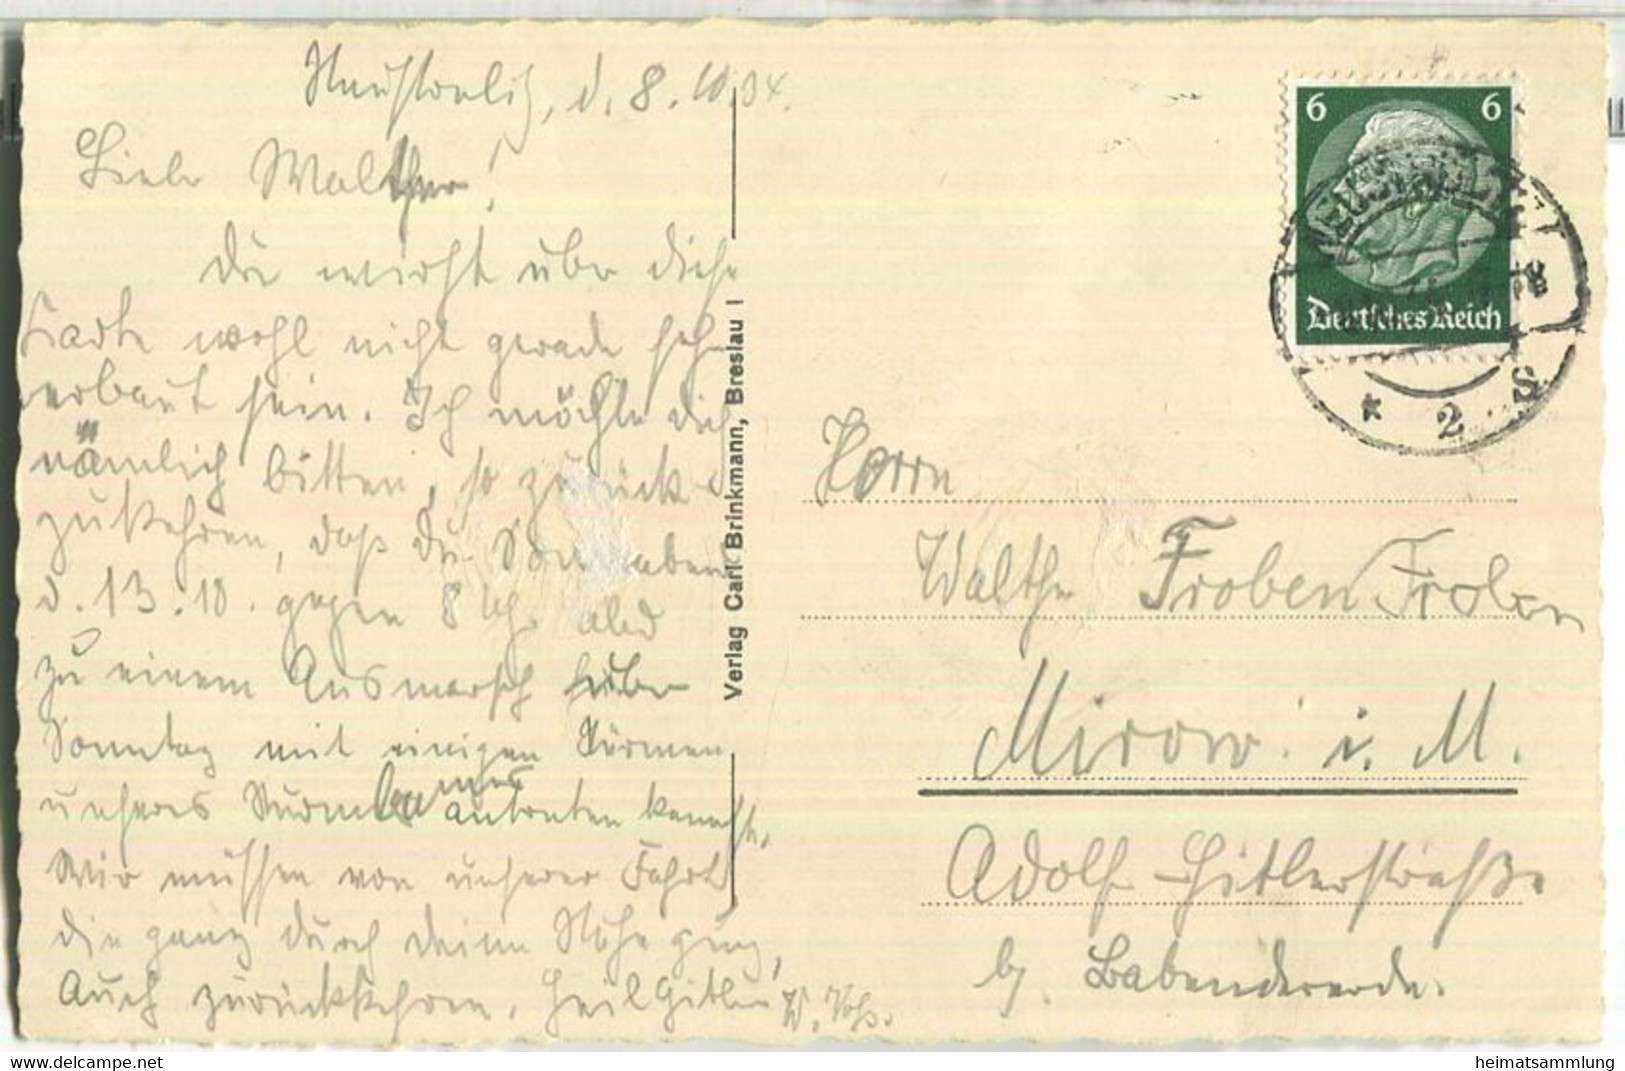 Neustrelitz, d. 8. 10. 34.
Lieber Walther!
Du wirst über diese
Karte wohl nicht gerade sehr
erbaut sein. Ich möchte dich
nämlich bitten, so zurück-
zukehren, daß du Sonnabend
d. 13. 10. gegen 8 Uhr abd
zu einem Ausmarsch über
Sonntag mit einigen Türmen
unseres Sturmbannes antreten kannst.
Wir müssen von unserer Fahrt
die ganz durch deine Nähe ging,
auch zurückkehren. Heil Hitler
Verlag Carl Brinkmann, Breslau I
6 6
Deutsches Reich
NEUSTRELITZ
* 2 S
Herrn
Walther Froben Froben
Mirow i. M.
Adolf-Hitlerstraße
b. Babendererde.
www.delcampe.net
heimatsammlung